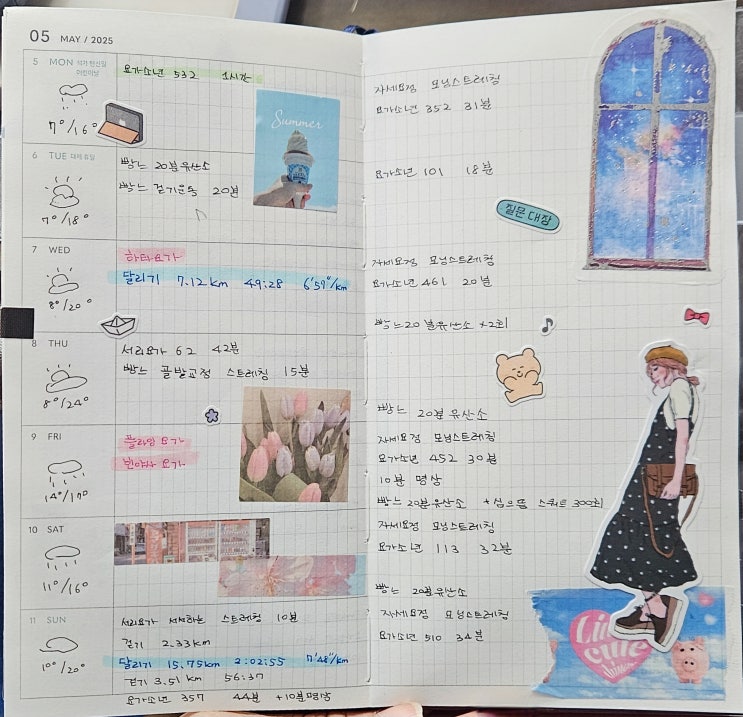 05 MAY / 2025
5 MON 석가탄신일
어린이날
7°/16°
요가소년 532 1시간
Summer
6 TUE 대체 휴일
7°/18°
빵느 20분유산소
빵느 걷기운동 20분
7 WED
8°/20°
하타요가
달리기 7.12km 49:28 6'57"/km
8 THU
8°/24°
서리요가 62 42분
빵느 골발교정 스트레칭 15분
9 FRI
14°/17°
플라잉 요가
빈야사 요가
10 SAT
11°/16°
11 SUN
10°/20°
서리요가 스트레칭 10분
걷기 2.33km
달리기 15.75km 2:02:55 7'48"/km
걷기 3.51km 56:37
요가소년 357 44분 +10분명상
자세요정 모닝스트레칭
요가소년 352 31분
요가소년 101 18분
질문 대장
자세요정 모닝스트레칭
요가소년 461 20분
빵느20분유산소 x2회
빵느 20분유산소
자세요정 모닝스트레칭
요가소년 452 30분
10분 명상
빵느 20분유산소 +심으뜸 스쿼트 300회
자세요정 모닝스트레칭
요가소년 113 32분
빵느 20분유산소
자세요정 모닝스트레칭
요가소년 510 34분
cute